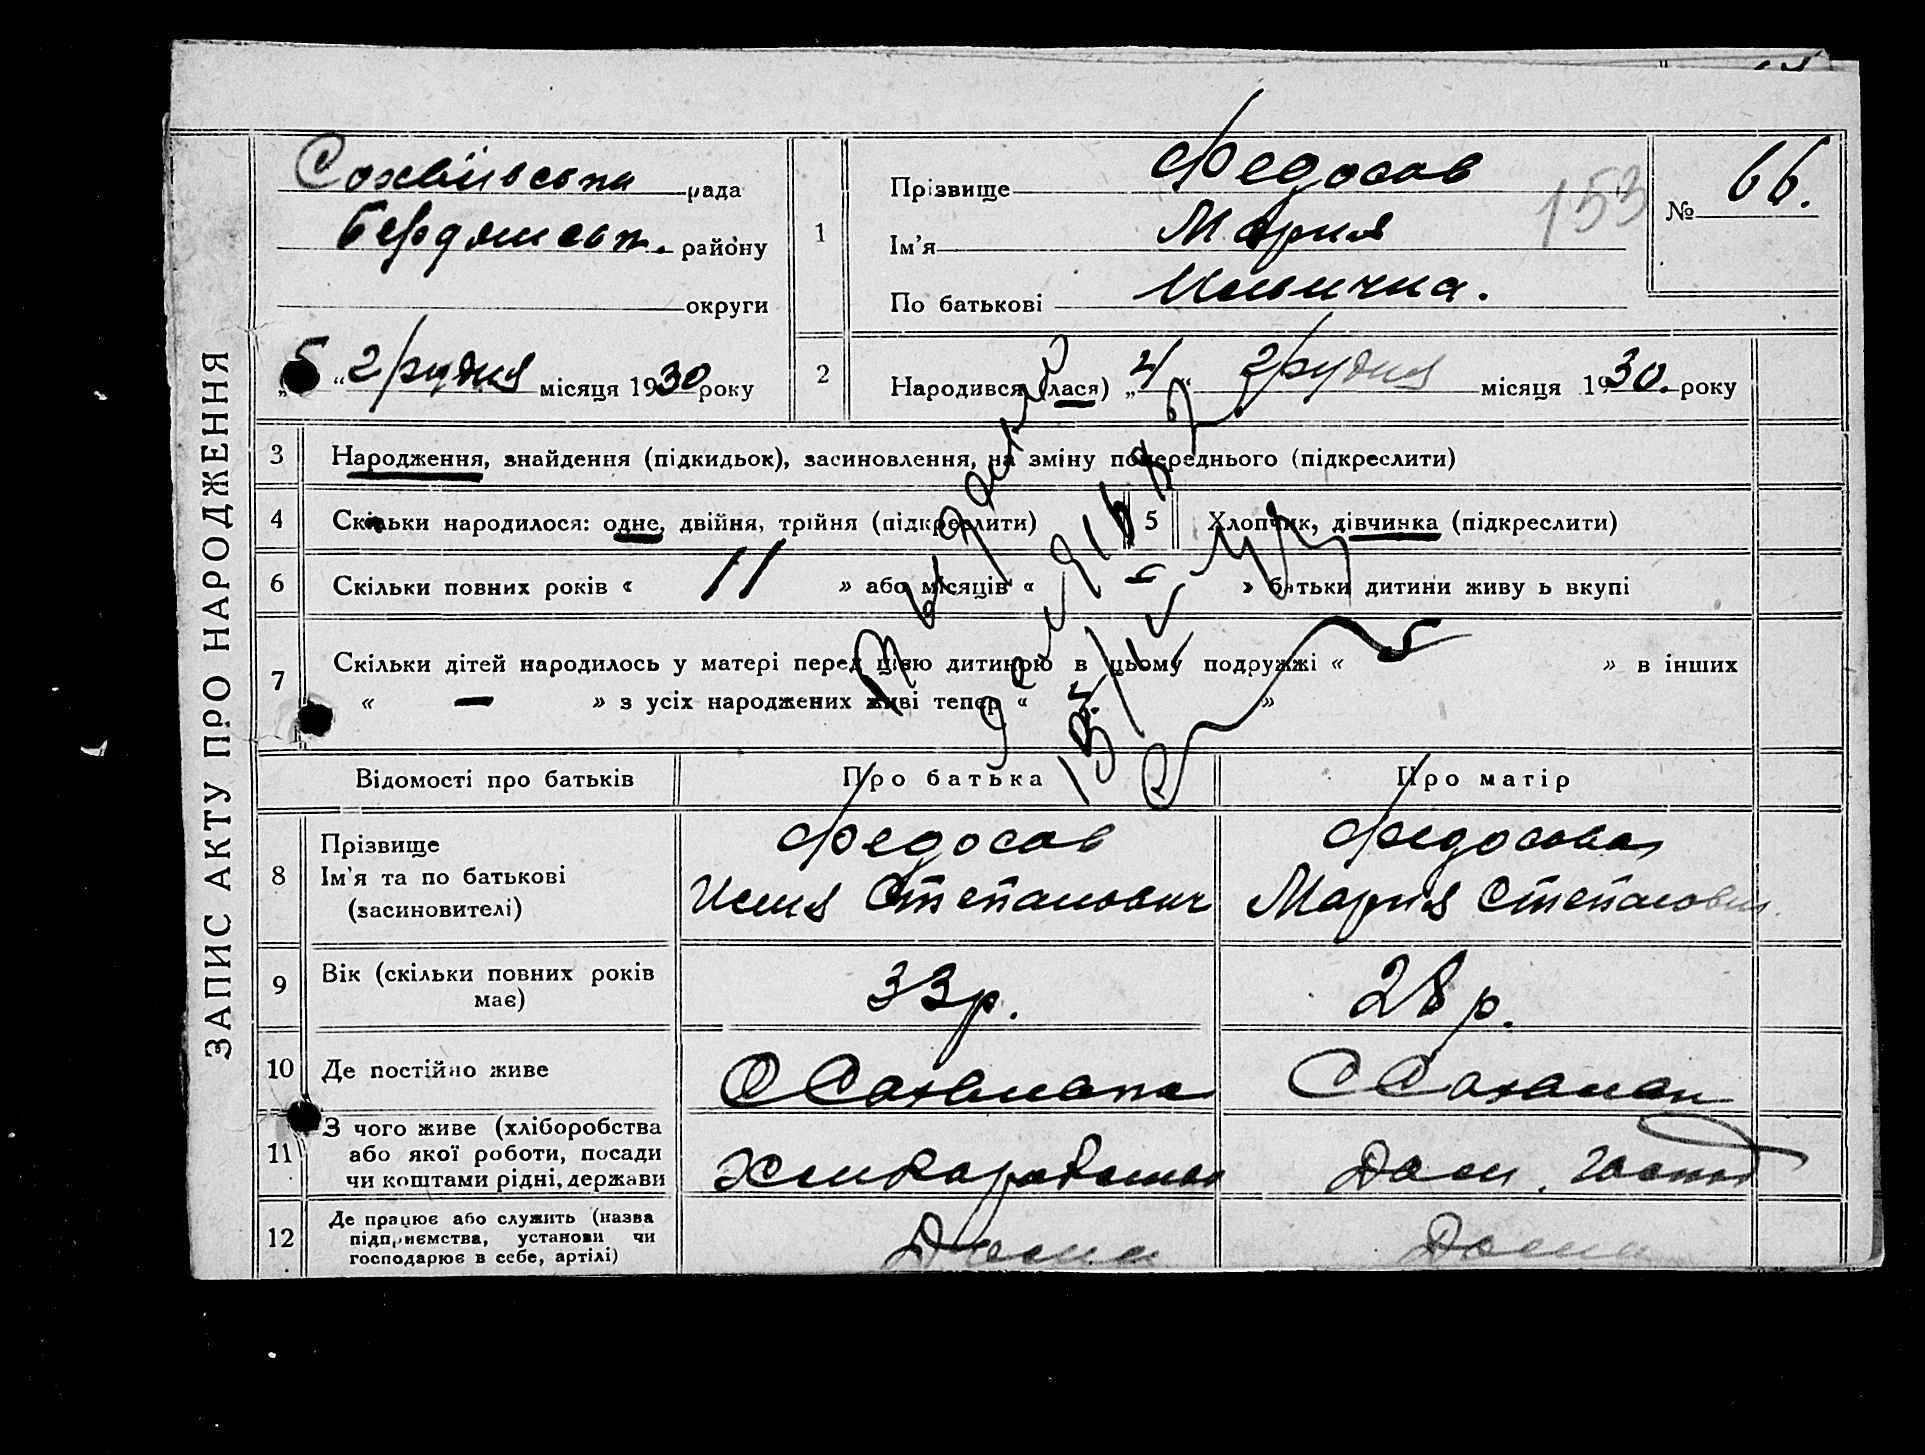 ЗАПИС АКТУ ПРО НАРОДЖЕННЯ
рада
Бердянськ. району
округи
5 “ грудня місяця 1930 року
1
Прізвище Федосов
Ім’я Мария
По батькові Ильична.
153
№ 66.
2
Народився (лася) „4“ грудня місяця 1930. року
3 Народження, знайдення (підкидьок), засиновлення, на зміну попереднього (підкреслити)
4 Скільки народилося: одне, двійня, трійня (підкреслити)
5 Хлопчик, дівчинка (підкреслити)
6 Скільки повних років « 11 » або місяців « » батьки дитини живу ь вкупі
7 Скільки дітей народилось у матері перед цією дитиною в цьому подружжі « » в інших
« — » з усіх народжених живі тепер « »
Відомості про батьків Про батька Про матір
8 Прізвище
Ім’я та по батькові
(засиновителі)
Федосов
Илия Степанович
Федосова
Мария Степанови
9 Вік (скільки повних років
має)
33 р.
28 р.
10 Де постійно живе
11 З чого живе (хліборобства
або якої роботи, посади
чи коштами рідні, держави
Дом.
12 Де працює або служить (назва
підприємства, установи чи
господарює в себе, артілі)
Дома
Дома